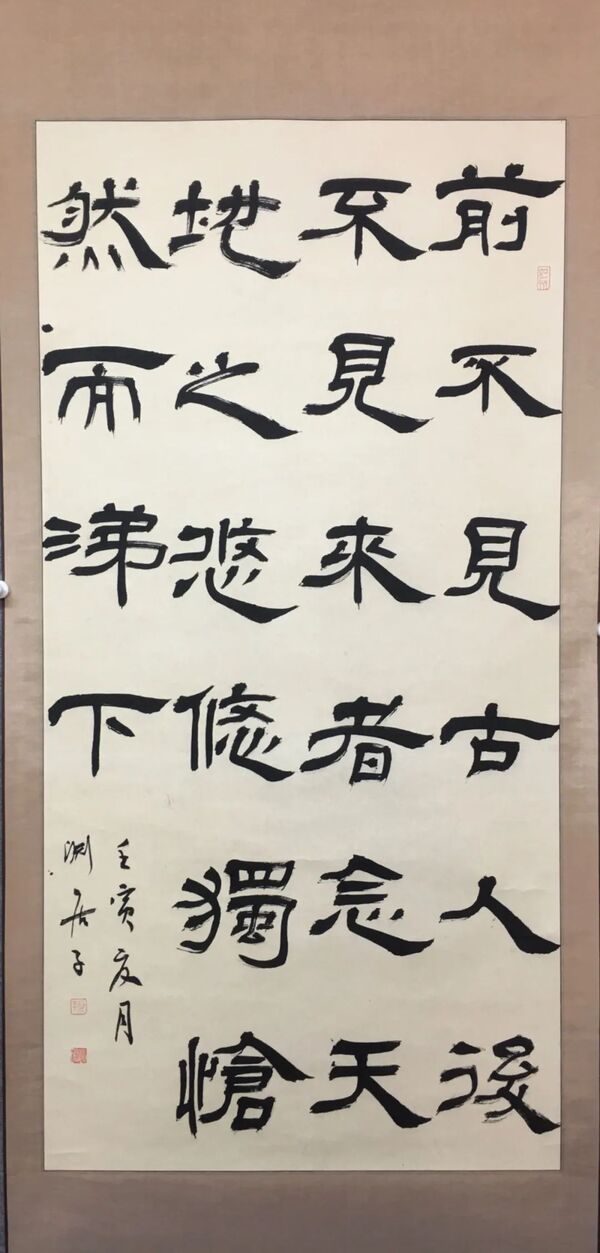 前不見古人後
不見來者念天
地之悠悠獨愴
然而涕下
壬寅夏月
渊居子